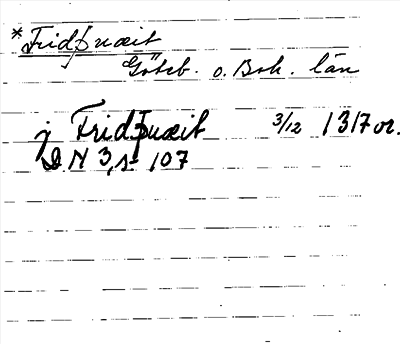 *Fridþuæit
Göteb. o. Boh. län
j Fridþuæit 3/12 1317 or.
DN 3, s 107